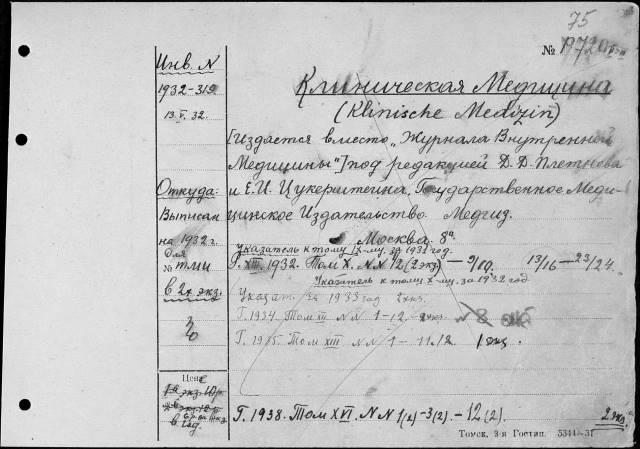 75
№ 19720
Инв. N
1932-319
13.V.32.
Откуда:
Выписан
на 1932 г.
для
№ тми
в 2х экз.
Цена
1й экз. 10р.
в год.
Клиническая Медицина
(Klinische Medizin)
[Издается вместо „Журнала Внутренной
Медицины"] под редакцией Д.Д. Плетнева
и Е.И. Цукерштейна, Государственное Меди-
цинское Издательство Медгиз.
Москва. 8°
Указатель к тому IX-му за 1931 год.
1932. Том X. N.N 1/2 (2 экз) — 9/10. 13/16 — 23/24.
Указатель к тому X-му. за 1932 год
Указат. за 1933 год 2 экз.
Г. 1934. Том XII N.N 1-12. 2 экз. N 8
Г. 1935. Том XIII N.N 1-11.12 1 экз
Г. 1938. Том XVI. N.N 1(2)-3(2).-12(2). 2 экз.
Томск, 3-я Гостип. 5344-31